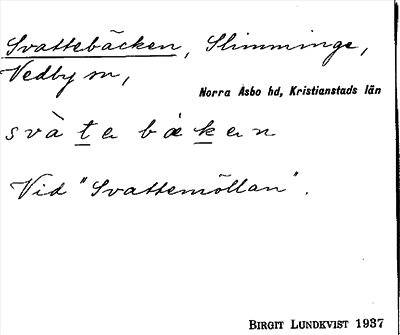 Svattebäcken, Slimminge,
Vedby sn,
Norra Åsbo hd, Kristianstads län
svàte bäken
Vid "Svattemöllan".
BIRGIT LUNDKVIST 1937